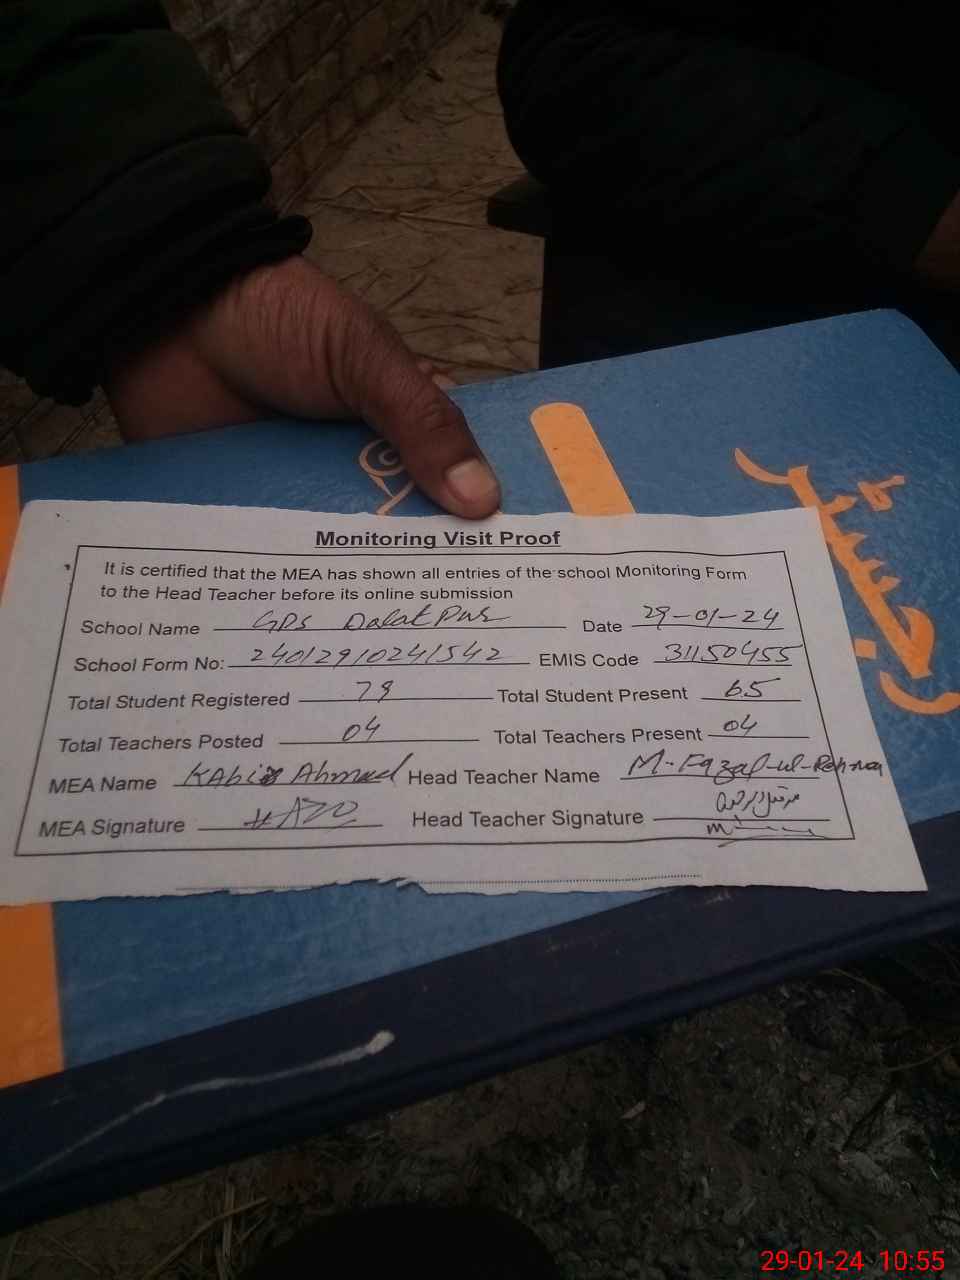 رجسٹر
Monitoring Visit Proof
It is certified that the MEA has shown all entries of the school Monitoring Form
to the Head Teacher before its online submission
School Name GPS Dalat Pur Date 29-01-24
School Form No: 24012910241542 EMIS Code 31150455
Total Student Registered 79 Total Student Present 65
Total Teachers Posted 04 Total Teachers Present 04
MEA Name Kabir Ahmad Head Teacher Name M-Fazal-ul-Rehman
MEA Signature Head Teacher Signature
29-01-24 10:55